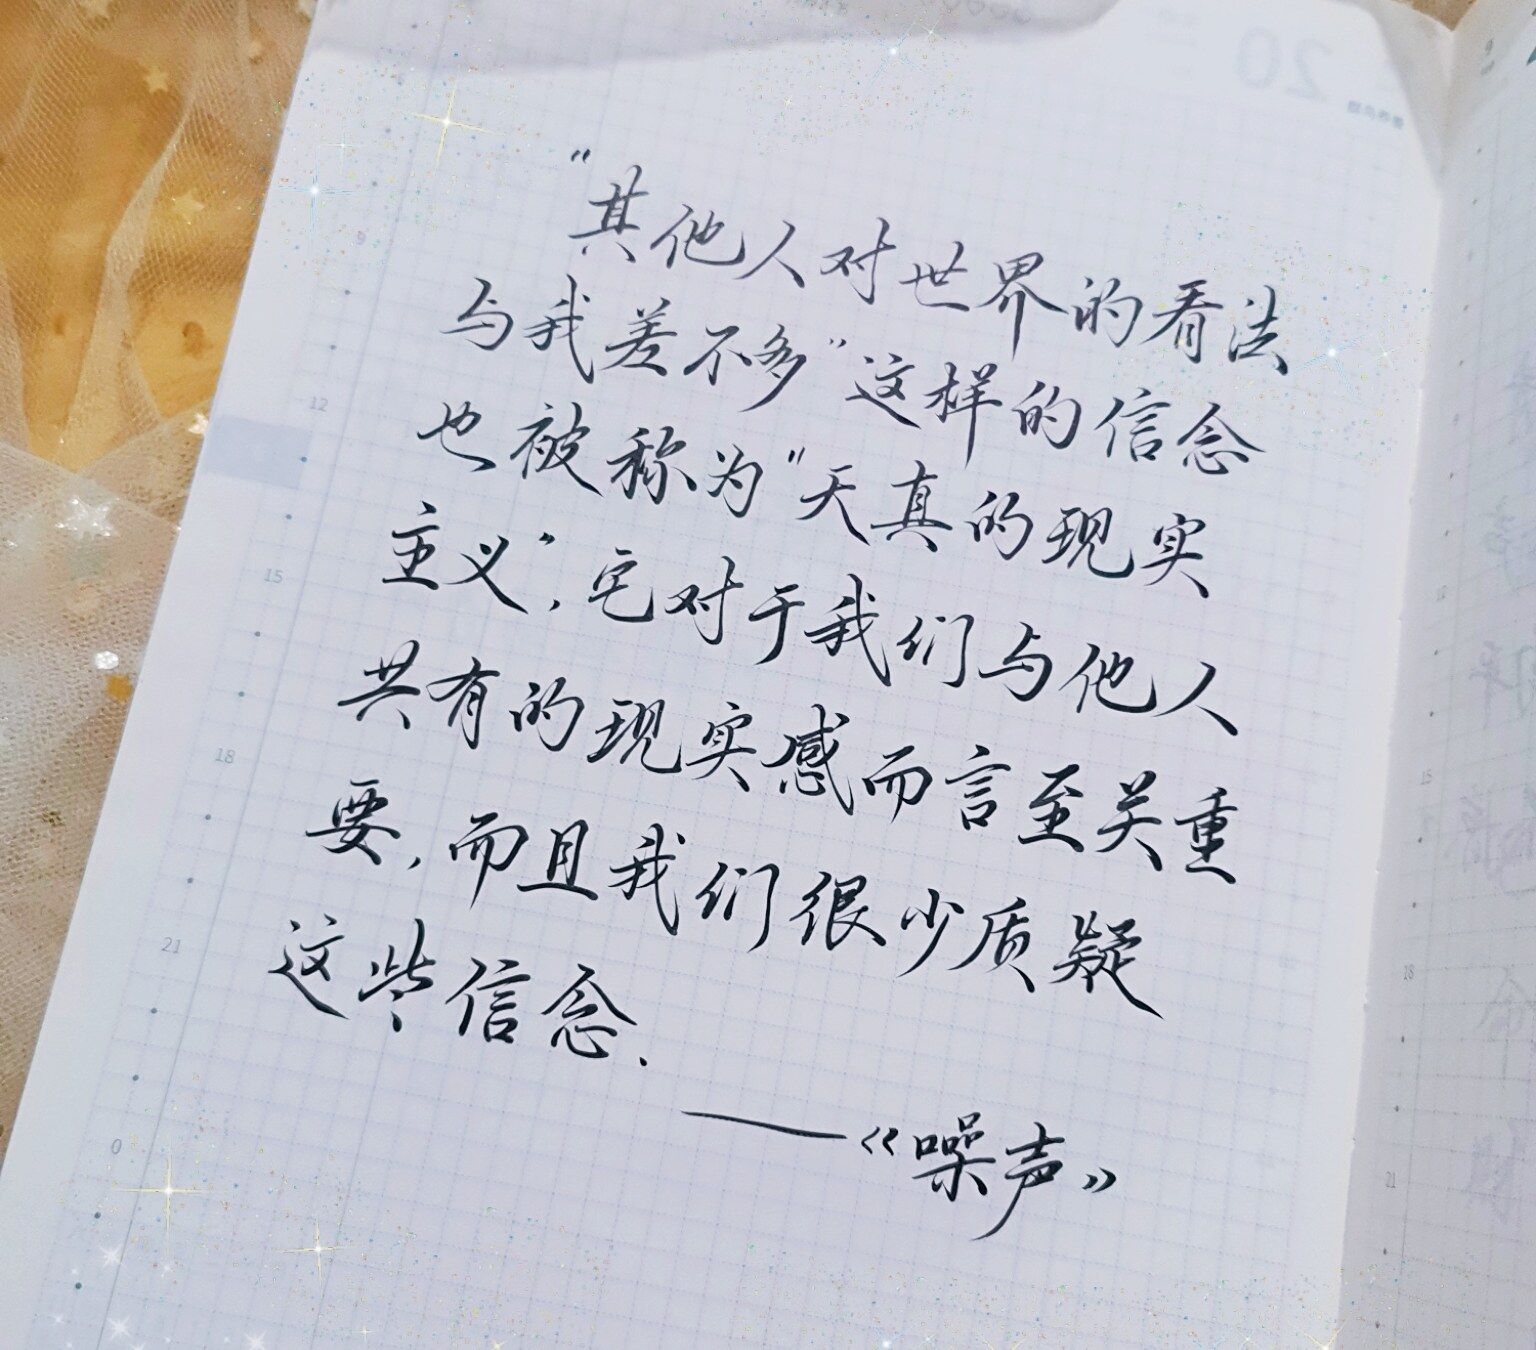 "其他人对世界的看法
与我差不多"这样的信念
也被称为"天真的现实
主义",它对于我们与他人
共有的现实感而言至关重
要,而且我们很少质疑
这些信念.
——《噪声》
20
9
12
15
18
21
0
12
15
18
21